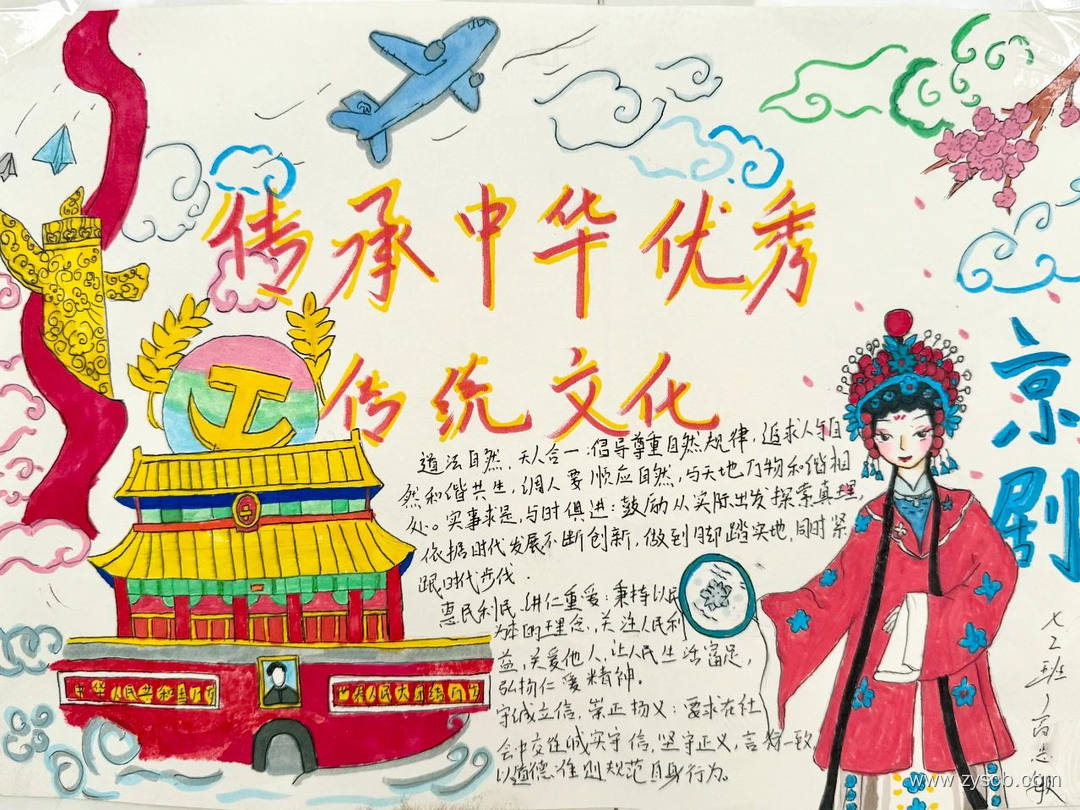 传承中华优秀
传统文化
京剧
道法自然,天人合一:倡导尊重自然规律,追求人与自
然和谐共生,调人要顺应自然,与天地万物和谐相
处。实事求是,与时俱进:鼓励从实际出发探索真理,
依据时代发展不断创新,做到脚踏实地,同时紧
跟时代步伐.
惠民利民,讲仁重爱:秉持以民
为本的理念,关注人民利
益,关爱他人,让人民生活富足,
弘扬仁爱精神。
守诚立信,崇正扬义:要求在社
会中交往诚实守信,坚守正义,言行一致
以道德准则规范自身行为。
中华人民共和国万岁
世界人民大团结万岁
七 班
www.zyscb.com